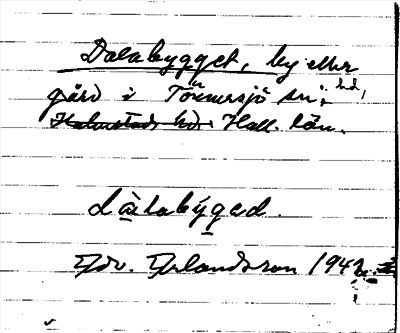 Dalabygget, by eller
gård i Tönnersjö sn; hd,
Halmstads hd. Hall. län.
dàlabýgəd.
Edv. Erlandsson 194